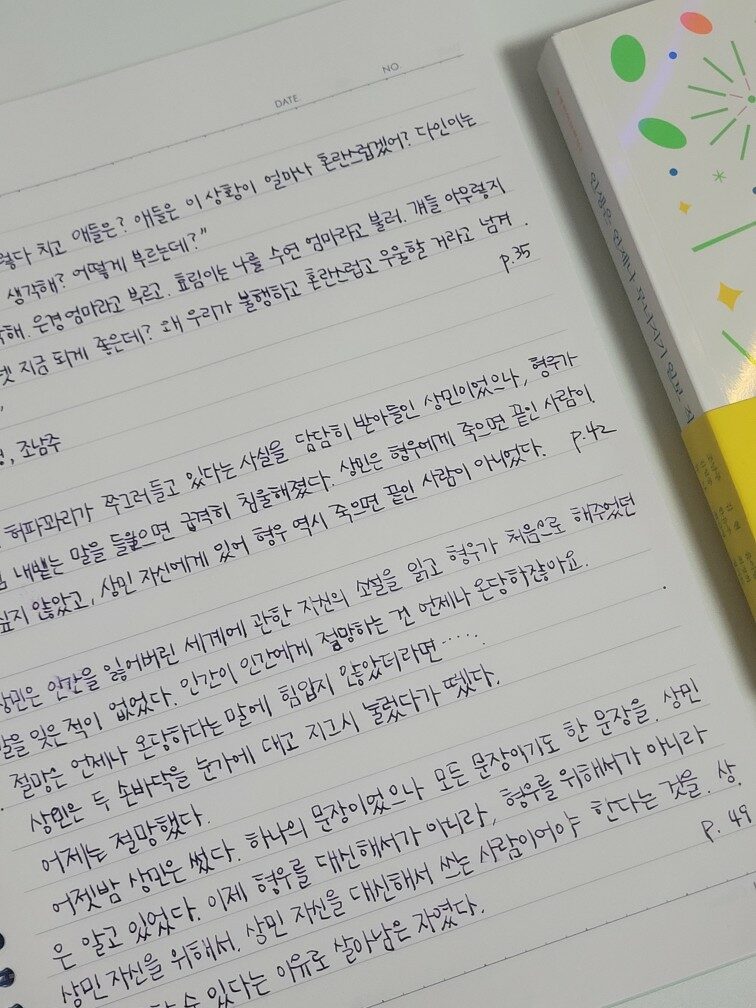 DATE
NO.
렇다 치고 애들은? 애들은 이 상황이 얼마나 혼란스럽겠어? 다인이는
생각해? 어떻게 부르는데?"
해. 은경 엄마라고 부르고. 효림이는 나를 수연 엄마라고 불러. 걔들 아무렇지
넷 지금 되게 좋은데? 왜 우리가 불행하고 혼란스럽고 우울할 거라고 넘겨
p.35
, 조남주
허파꽈리가 쭈그러들고 있다는 사실을 담담히 받아들인 상민이었으나, 형우가
내뱉는 말을 들으면 급격히 침울해졌다. 상민은 형우에게 죽으면 끝인 사람이
싶지 않았고, 상민 자신에게 있어 형우 역시 죽으면 끝인 사람이 아니었다. p.42
상민은 인간을 잃어버린 세계에 관한 자신의 소설을 읽고 형우가 처음으로 해주었던
말을 잊은 적이 없었다. 인간이 인간에게 절망하는 건 언제나 온당하잖아요.
절망은 언제나 온당하다는 말에 힘입지 않았더라면.....
상민은 두 손바닥을 눈가에 대고 지그시 눌렀다가 뗐다.
어제는 절망했다.
어젯밤 상민은 썼다. 하나의 문장이었으나 모든 문장이기도 한 문장을. 상민
은 알고 있었다. 이제 형우를 대신해서가 아니라, 형우를 위해서가 아니라
상민 자신을 위해서. 상민 자신을 대신해서 쓰는 사람이어야 한다는 것을. 상
수 있다는 이유로 살아남은 자였다.
p. 49
인생은 언제나 무너지기 일보 직